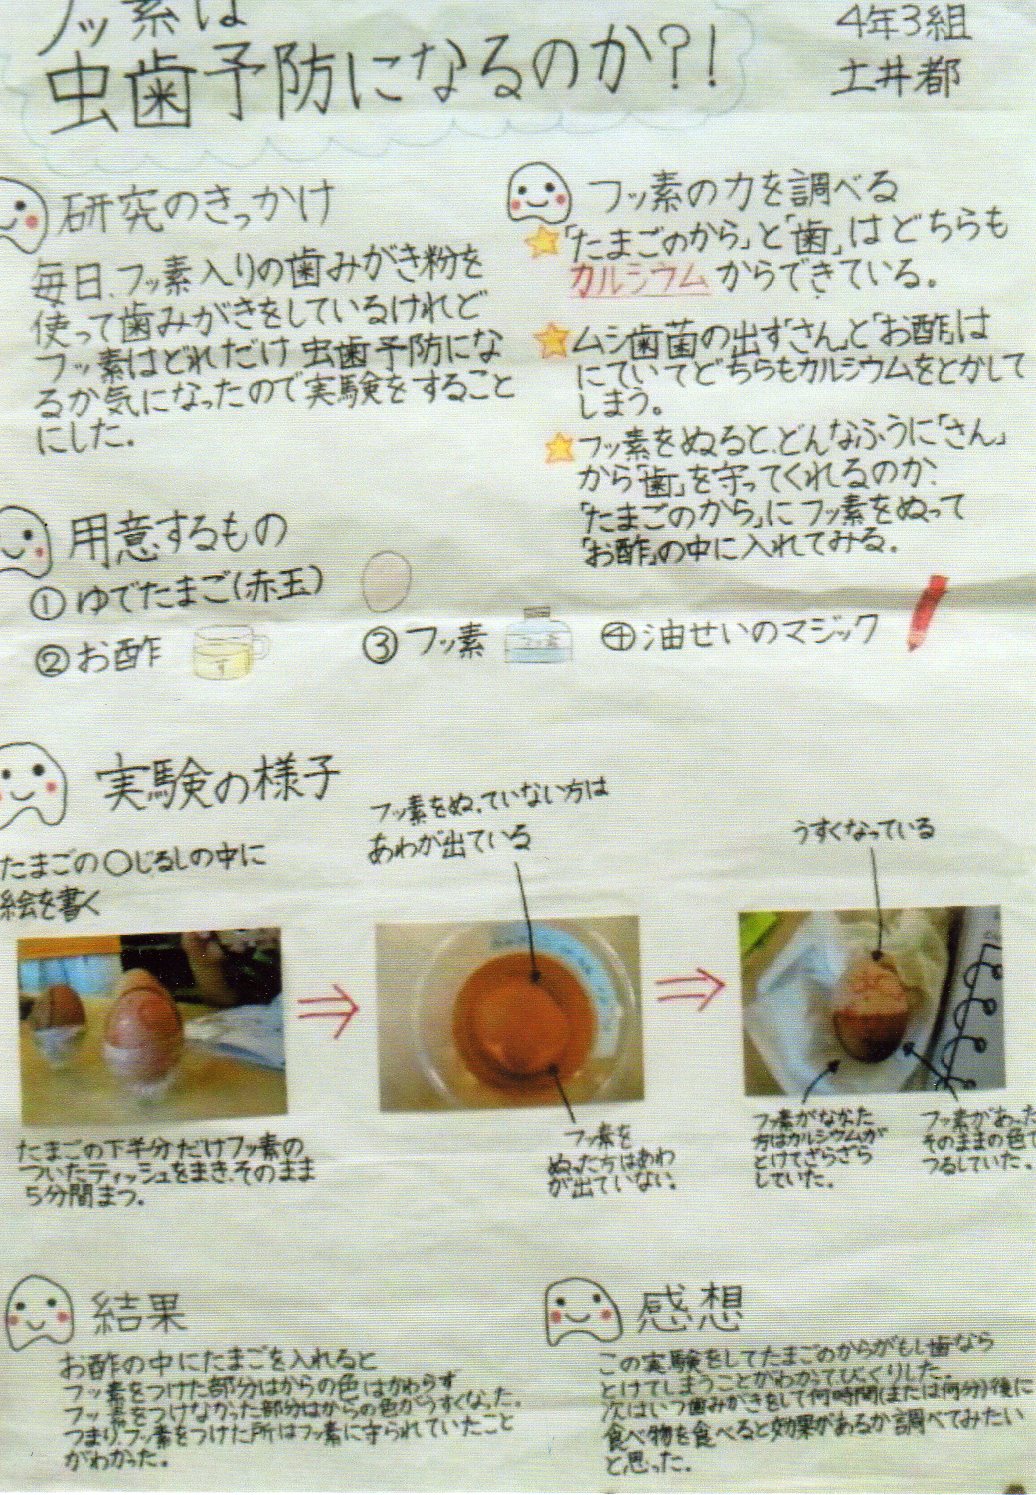 フッ素は
虫歯予防になるのか?!
4年3組
土井都
研究のきっかけ
毎日、フッ素入りの歯みがき粉を
使って歯みがきをしているけれど
フッ素はどれだけ虫歯予防にな
るか気になったので実験をすること
にした。
フッ素の力を調べる
「たまごのから」と「歯」はどちらも
カルシウムからできている。
ムシ歯菌の出す「さん」と「お酢」は
にていてどちらもカルシウムをとかして
しまう。
フッ素をぬると、どんなふうに「さん」
から「歯」を守ってくれるのか、
「たまごのから」にフッ素をぬって
「お酢」の中に入れてみる。
用意するもの
①ゆでたまご(赤玉)
②お酢
す
③フッ素
フッ素
④油せいのマジック
実験の様子
たまごの○じるしの中に
絵を書く
フッ素をぬっていない方は
あわが出ている
うすくなっている
たまごの下半分だけフッ素の
ついたティッシュをまき、そのまま
5分間まつ。
フッ素を
ぬった方はあわ
が出ていない。
フッ素がなかた
方はカルシウムが
とけてざらざら
していた。
フッ素があった
そのままの色で
つるしていた。
結果
お酢の中にたまごを入れると
フッ素をつけた部分はからの色はかわらず
フッ素をつけなかった部分はからの色がうすくなった。
つまり、フッ素をつけた所はフッ素に守られていたこと
がわかった。
感想
この実験をしてたまごのからがもし歯なら
とけてしまうことがわかってびっくりした。
次はいつ歯みがきをして何時間(または何分)後に
食べ物を食べると効果があるか調べてみたい
と思った。